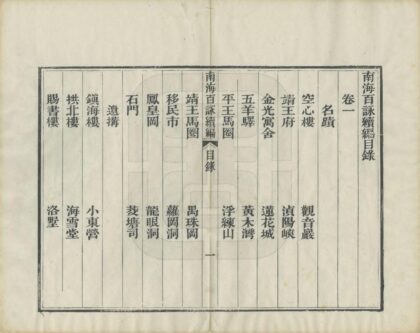 南海百詠續編目錄
卷一
名蹟
空心樓 觀音巖
靖王府 湞陽峽
金光寓舍 蓮花城
五羊驛 黃木灣
平王馬圈 浮練山
南海百詠續編 目錄 一
靖王馬圈 禺珠岡
移民市 蘿岡洞
鳳皇岡 龍眼洞
石門 茭塘司
遺構
鎮海樓 小東營
拱北樓 海雪堂
賜書樓 洛墅